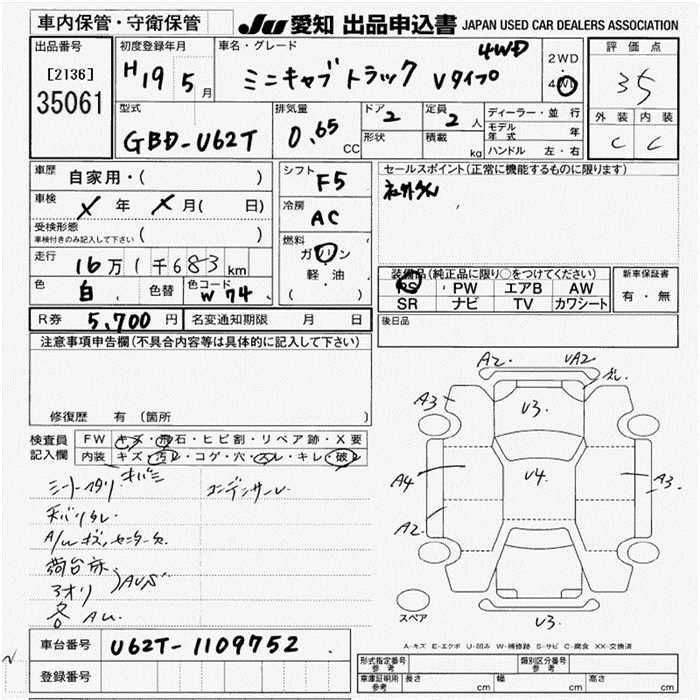 車内保管・守衛保管
JU 愛知 出品申込書 JAPAN USED CAR DEALERS ASSOCIATION
出品番号
[2136]
35061
初度登録年月
H19 5月
車名・グレード
4WD
ミニキャブトラック Vタイプ
2WD
4WD
評価点
3.5
外装 内装
C C
型式
GBD-U62T
排気量
0.65 CC
ドア 2
形状
定員 2人
積載 kg
ディーラー・並行
モデル年式 年
ハンドル 左・右
車歴 自家用・( )
車検 X年 X月( 日)
受検形態
車検付きのみ記入して下さい ( )
走行 16万1千683km
色 白 色替 色コード W74
シフト F5
冷房 AC
燃料
ガソリン
軽油
( )
セールスポイント(正常に機能するものに限ります)
装備品(純正品に限り○をつけてください)
PS PW エアB AW
SR ナビ TV カワシート
新車保証書
有・無
R券 5,700円 名変通知期限 月 日
後日品
注意事項申告欄(不具合内容等は具体的に記入して下さい)
修復歴 有 (箇所 )
検査員記入欄
FW キズ・飛石・ヒビ割・リペア跡・X要
内装 キズ・汚レ・コゲ・穴・スレ・キレ・破レ
コンデンサーレ
荷台
アオリ
A2 UA2
A3
U3
A4
U4
A3
A2
U3
スペア
A-キズ E-エクボ U-凹み W-補修跡 S-サビ C-腐食 XX-交換済
車台番号 U62T-1109752
登録番号
形式指定番号 参考
類別区分番号 参考
車庫証明用 参考 長さ cm 幅 cm 高さ cm